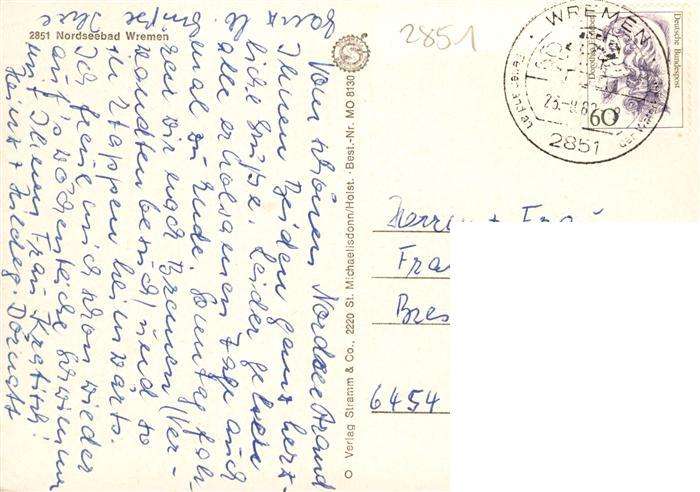 2851 Nordseebad Wremen
Vom schönen Nordseestrand
Ihnen Beiden ganz herz-
liche Grüße. Leider gehen
alle erholsamen Tage auch
einmal zu Ende. Sonntag fah-
ren wir nach Bremen (Ver-
wandtenbesuch) und so
in Etappen heimwärts.
Ich freue mich schon wieder
auf's wöchentliche Schwimmen
mit Ihnen Frau
Ganz
Grüße Ihre
Heinz +
© Verlag Stramm & Co., 2220 St. Michaelisdonn/Holst. · Best.-Nr. MO 8130
2851
WREMEN
2851
Deutsche Bundespost
60
Herrn + Frau
Fra
Bres
6454